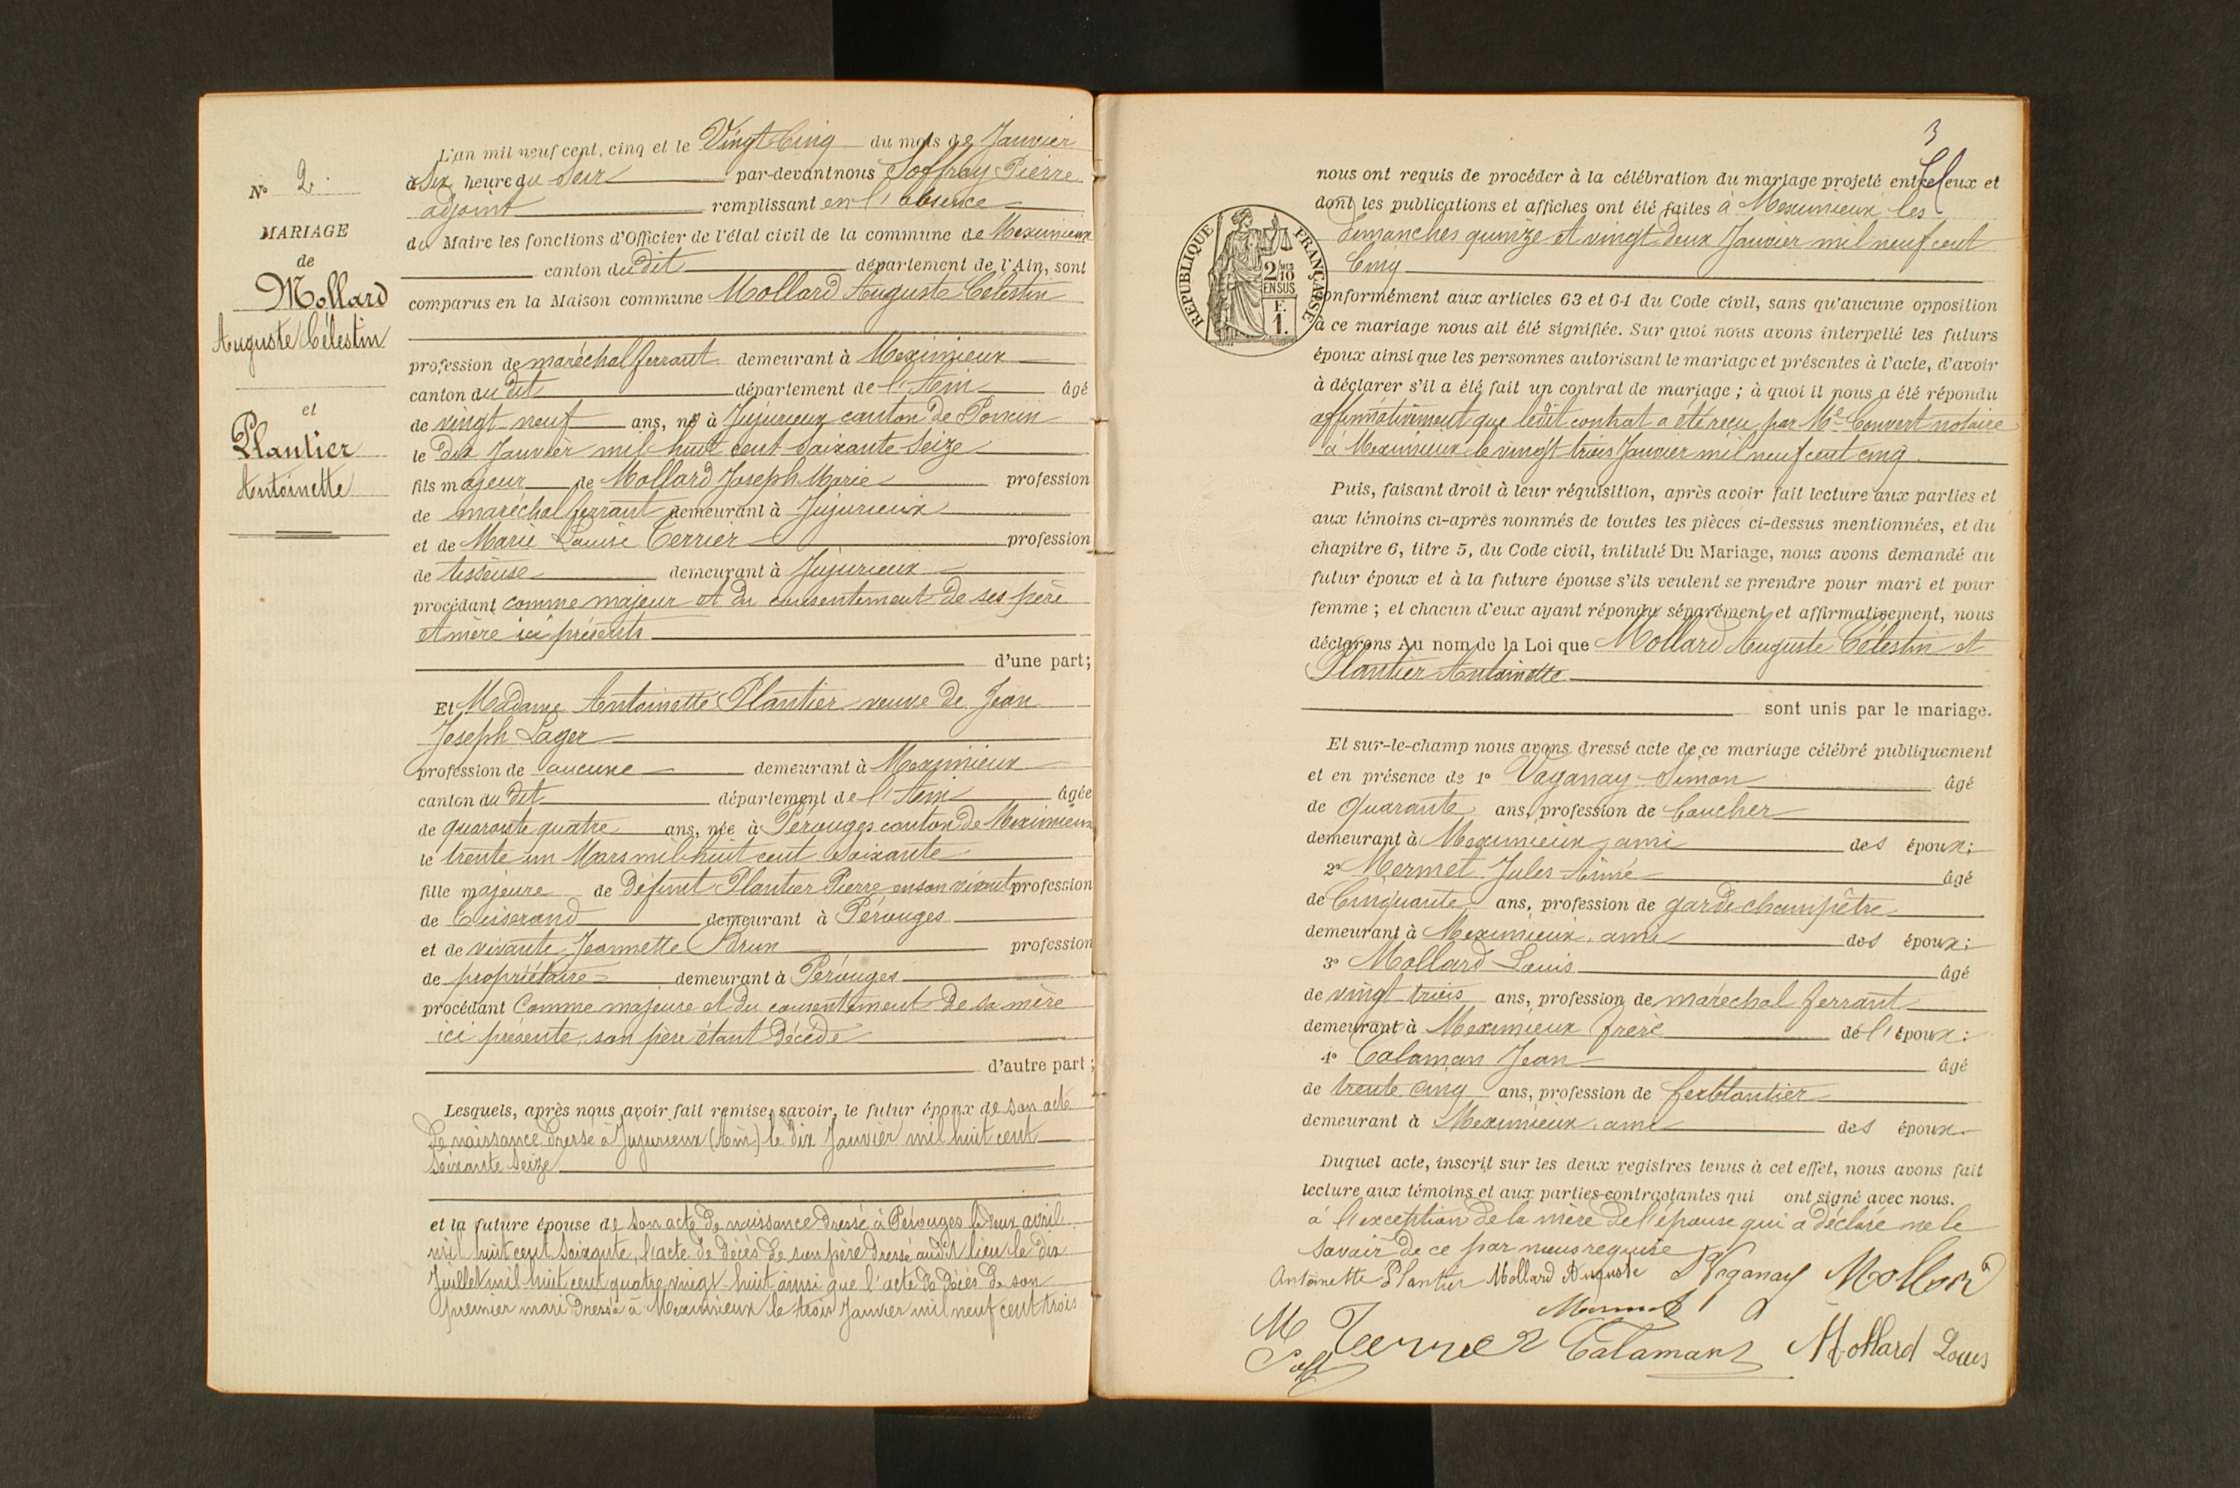 N° 2.
MARIAGE
de
Mollard
Auguste Célestin
et
Plantier
Antoinette
L'an mil neuf cent, cinq et le Vingt Cinq du mois de Janvier
à Six heure du Soir par-devant nous Soffray Pierre
adjoint remplissant en l'absence
du Maire les fonctions d'Officier de l'état civil de la commune de Meximieux
canton du dit département de l'Ain, sont
comparus en la Maison commune Mollard Auguste Célestin
profession de maréchal ferrant demeurant à Meximieux
canton du dit département de l'Ain âgé
de vingt neuf ans, né à Jujurieux canton de Poncin
le dix Janvier mil huit cent soixante seize
fils majeur de Mollard Joseph Marie profession
de maréchal ferrant demeurant à Jujurieux
et de Marie Louise Terrier profession
de tisseuse demeurant à Jujurieux
procédant comme majeur et du consentement de ses père
et mère ici présents
d'une part;
Et Madame Antoinette Plantier veuve de Jean
Joseph Lager
profession de aucune demeurant à Meximieux
canton du dit département de l'Ain âgée
de quarante quatre ans, née à Pérouges canton de Meximieux
le trente un Mars mil huit cent soixante
fille majeure de défunt Plantier Pierre en son vivant profession
de Tisserand demeurant à Pérouges
et de vivante Jeannette Brun profession
de propriétaire demeurant à Pérouges
procédant Comme majeure et du consentement de sa mère
ici présente, son père étant décédé
d'autre part;
Lesquels, après nous avoir fait remise, savoir, le futur époux de son acte
de naissance dressé à Jujurieux (Ain) le dix Janvier mil huit cent
soixante seize
et la future épouse de son acte de naissance dressé à Pérouges le deux avril
mil huit cent soixante, l'acte de décès de son père dressé audit lieu le dix
Juillet mil huit cent quatre vingt huit ainsi que l'acte de décès de son
premier mari dressé à Meximieux le trois Janvier mil neuf cent trois
3
nous ont requis de procéder à la célébration du mariage projeté entre eux et
dont les publications et affiches ont été faites à Meximieux les
Dimanches quinze et vingt deux Janvier mil neuf cent
Cinq
REPUBLIQUE FRANÇAISE
2/10
EN SUS
F.
1.
conformément aux articles 63 et 64 du Code civil, sans qu'aucune opposition
à ce mariage nous ait été signifiée. Sur quoi nous avons interpellé les futurs
époux ainsi que les personnes autorisant le mariage et présentes à l'acte, d'avoir
à déclarer s'il a été fait un contrat de mariage; à quoi il nous a été répondu
affirmativement que ledit contrat a été reçu par Me Convert notaire
à Meximieux le vingt trois Janvier mil neuf cent cinq.
Puis, faisant droit à leur réquisition, après avoir fait lecture aux parties et
aux témoins ci-après nommés de toutes les pièces ci-dessus mentionnées, et du
chapitre 6, titre 5, du Code civil, intitulé Du Mariage, nous avons demandé au
futur époux et à la future épouse s'ils veulent se prendre pour mari et pour
femme; et chacun d'eux ayant répondu séparément et affirmativement, nous
déclarons Au nom de la Loi que Mollard Auguste Célestin et
Plantier Antoinette
sont unis par le mariage.
Et sur-le-champ nous avons dressé acte de ce mariage célébré publiquement
et en présence de 1° Vaganay Simon âgé
de Quarante ans, profession de boucher
demeurant à Meximieux, ami des époux;
2° Mermet Jules Aimé âgé
de Cinquante ans, profession de garde champêtre
demeurant à Meximieux, ami des époux;
3° Mollard Louis âgé
de vingt trois ans, profession de maréchal ferrant
demeurant à Meximieux frère de l'époux;
4° Calaman Jean âgé
de trente cinq ans, profession de ferblantier
demeurant à Meximieux, ami des époux.
Duquel acte, inscrit sur les deux registres tenus à cet effet, nous avons fait
lecture aux témoins et aux parties contractantes qui ont signé avec nous.
à l'exception de la mère de l'épouse qui a déclaré ne le
savoir de ce par nous requise
Antoinette Plantier Mollard Auguste S Vaganay Mollard
Mermet
M Terrier Calamant Mollard Louis